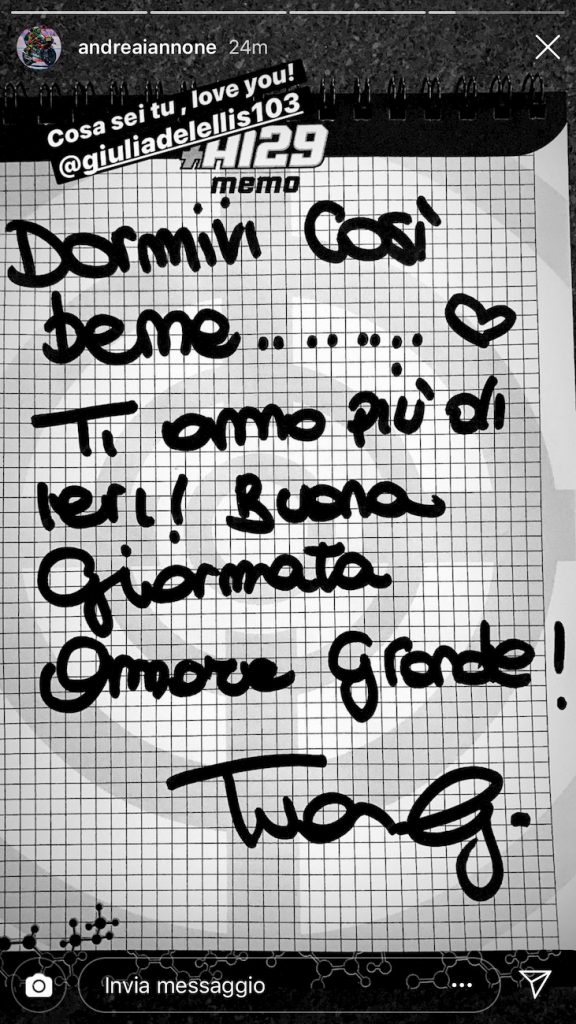 andreaiannone 24m
Cosa sei tu , love you!
@giuliadelellis103
#AI29
memo
Dormivi Così
bene.. .. ... .. ♡
Ti amo più di
Ieri! Buona
Giornata
Amore Grande!
Tua G.
Invia messaggio